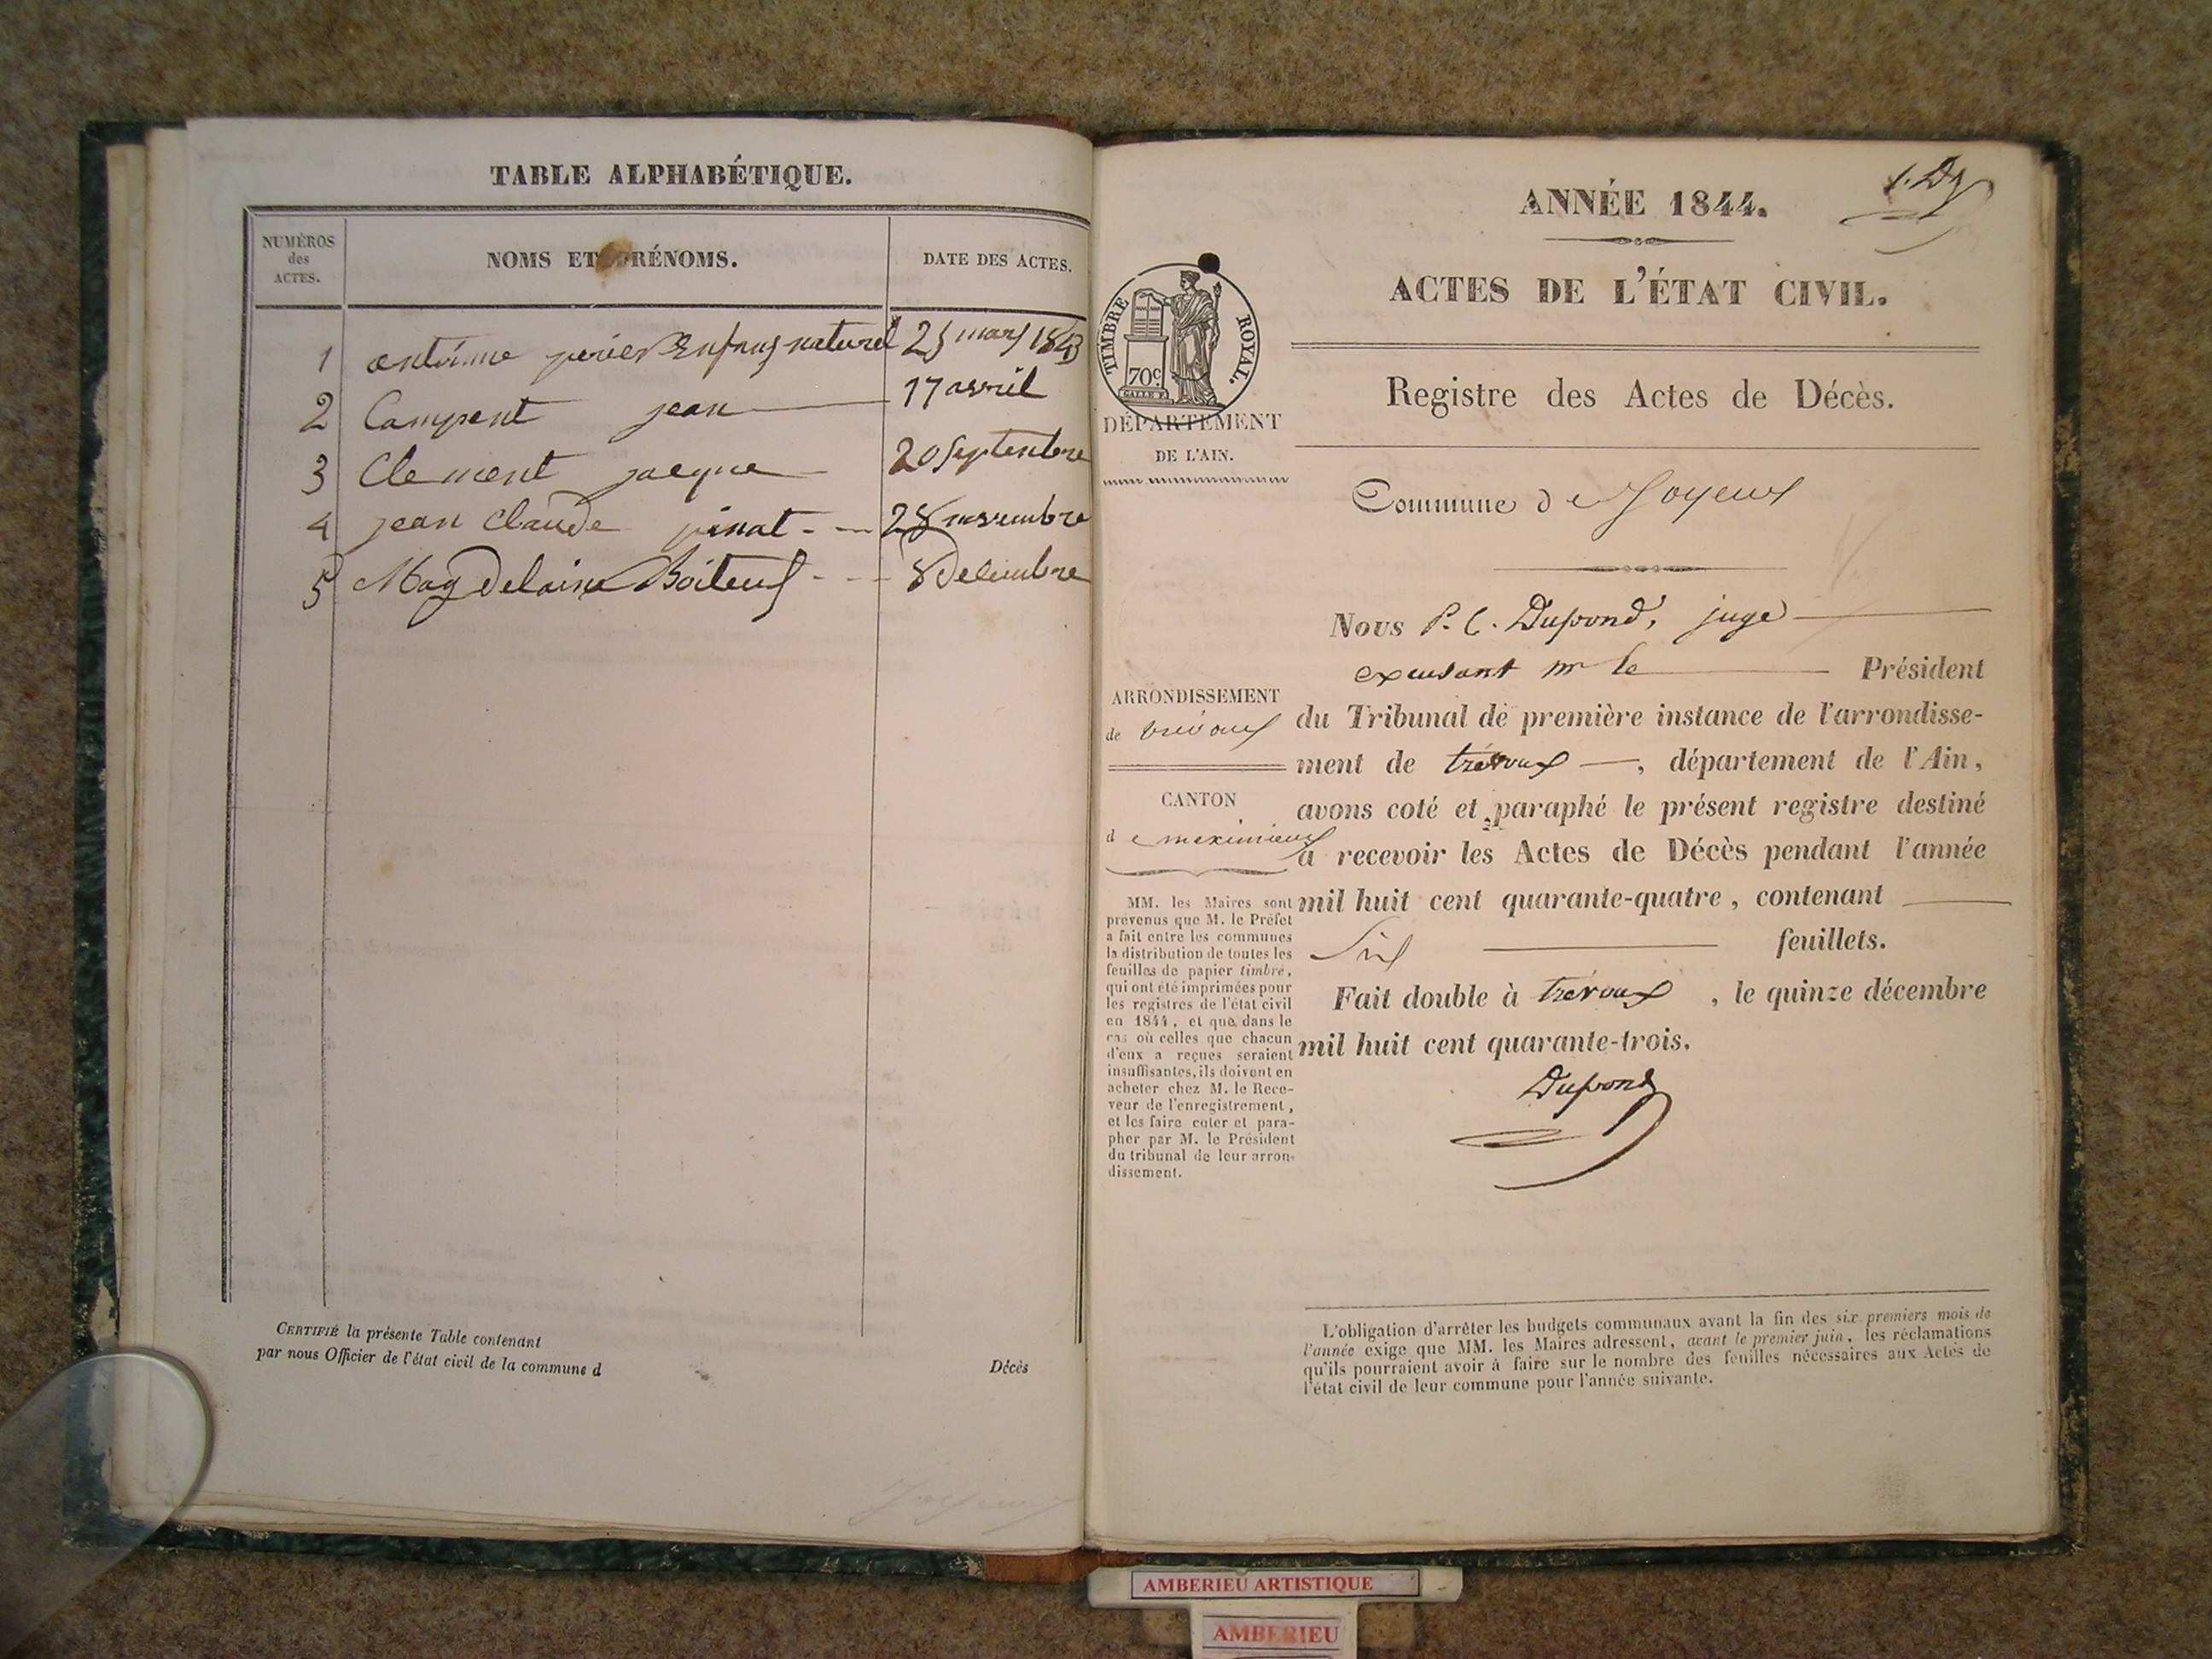 TABLE ALPHABÉTIQUE.
NUMÉROS
des
ACTES.
NOMS ET PRÉNOMS.
DATE DES ACTES.
1 antoinne Enfant naturel 25 mars 1843
2 Campent jean 17 avril
3 Clement jacque 20 Septenbre
4 jean Claude pinat 28 novembre
5 Magdelaine Boiteux 8 Decembre
CERTIFIÉ la présente Table contenant
par nous Officier de l'état civil de la commune d
Décès
1. Dd
ANNÉE 1844.
ACTES DE L'ÉTAT CIVIL.
Registre des Actes de Décès.
TIMBRE ROYAL.
70c
DÉPARTEMENT
DE L'AIN.
Commune de Joyeux
Nous P. C. Dupond, juge
excusant mr le Président
du Tribunal de première instance de l'arrondisse-
ment de trévoux, département de l'Ain,
avons coté et paraphé le présent registre destiné
à recevoir les Actes de Décès pendant l'année
mil huit cent quarante-quatre, contenant
Six feuillets.
Fait double à trévoux, le quinze décembre
mil huit cent quarante-trois.
Dupond
ARRONDISSEMENT
de trévoux
CANTON
de meximieux
MM. les Maires sont
prévenus que M. le Préfet
a fait entre les communes
la distribution de toutes les
feuilles de papier timbré,
qui ont été imprimées pour
les registres de l'état civil
en 1844, et que dans le
cas où celles que chacun
d'eux a reçues seraient
insuffisantes, ils doivent en
acheter chez M. le Rece-
veur de l'enregistrement,
et les faire coter et para-
pher par M. le Président
du tribunal de leur arron-
dissement.
L'obligation d'arrêter les budgets communaux avant la fin des six premiers mois de
l'année exige que MM. les Maires adressent, avant le premier juin, les réclamations
qu'ils pourraient avoir à faire sur le nombre des feuilles nécessaires aux Actes de
l'état civil de leur commune pour l'année suivante.
AMBERIEU ARTISTIQUE
AMBERIEU